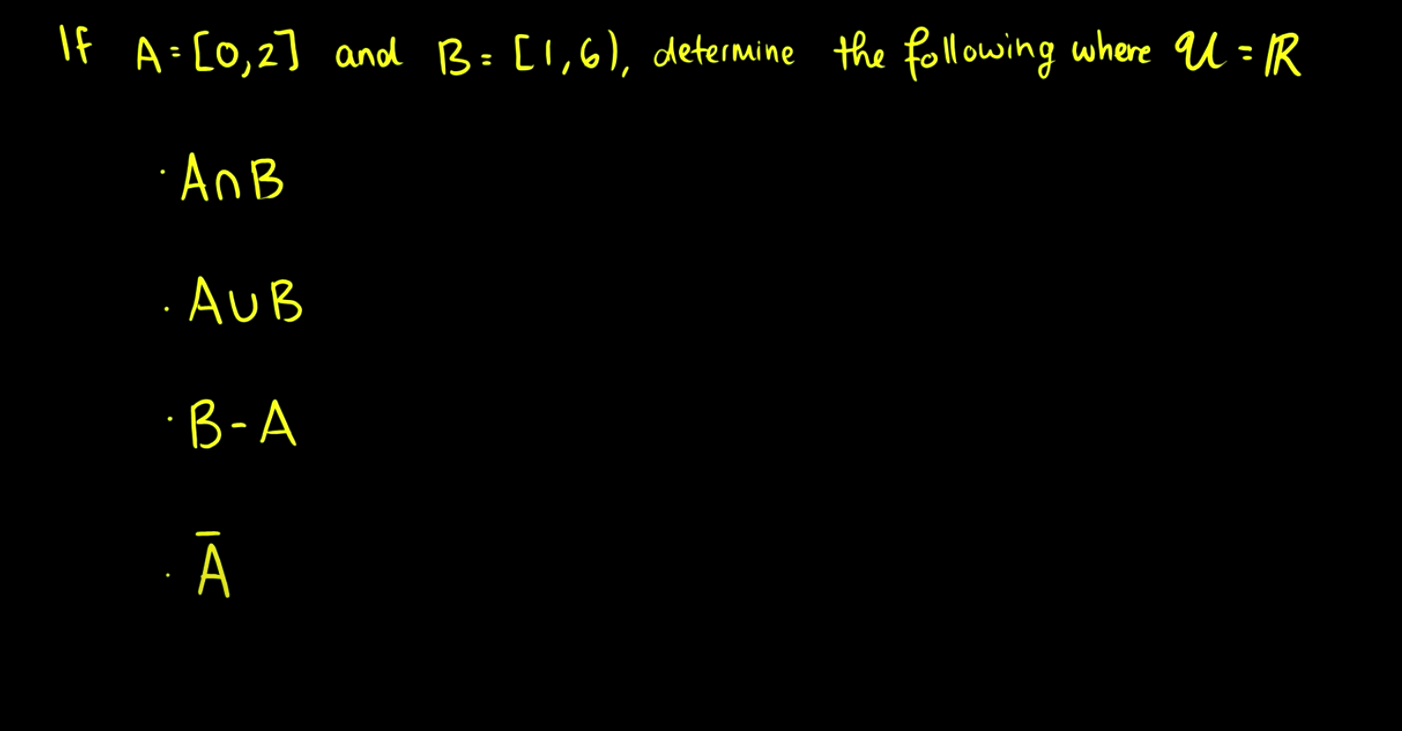 If A = [0,2] and B = [1,6), determine the following where 𝒰 = ℝ
· A∩B
· A∪B
· B - A
· Ā